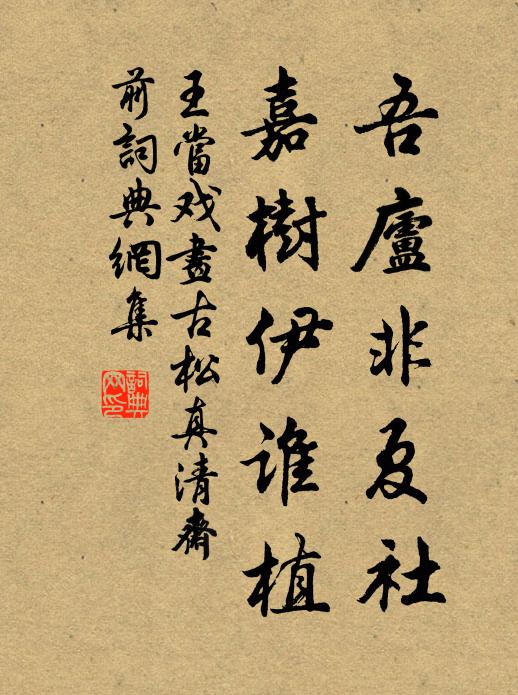 吾廬非夏社
嘉樹伊誰植
王當戏畫古松真清齋
前詞典網集
詞典
网印